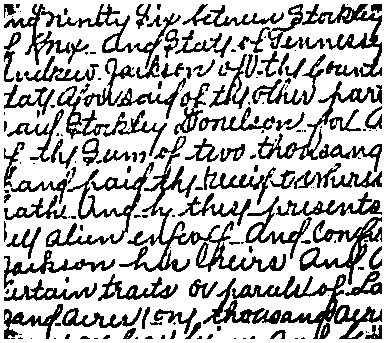 and ninety six between Stockley
of Knox and State of Tennessee
Andrew Jackson of the Count
tate aforesaid of the other part
said Stockley Donelson for a
f the Sum of two thousand
hand paid the receipt where
hath and by these presents
ell alien enfeoff and Confir
Jackson his heirs and a
certain tracts or parcels of La
sand acres one thousand acre